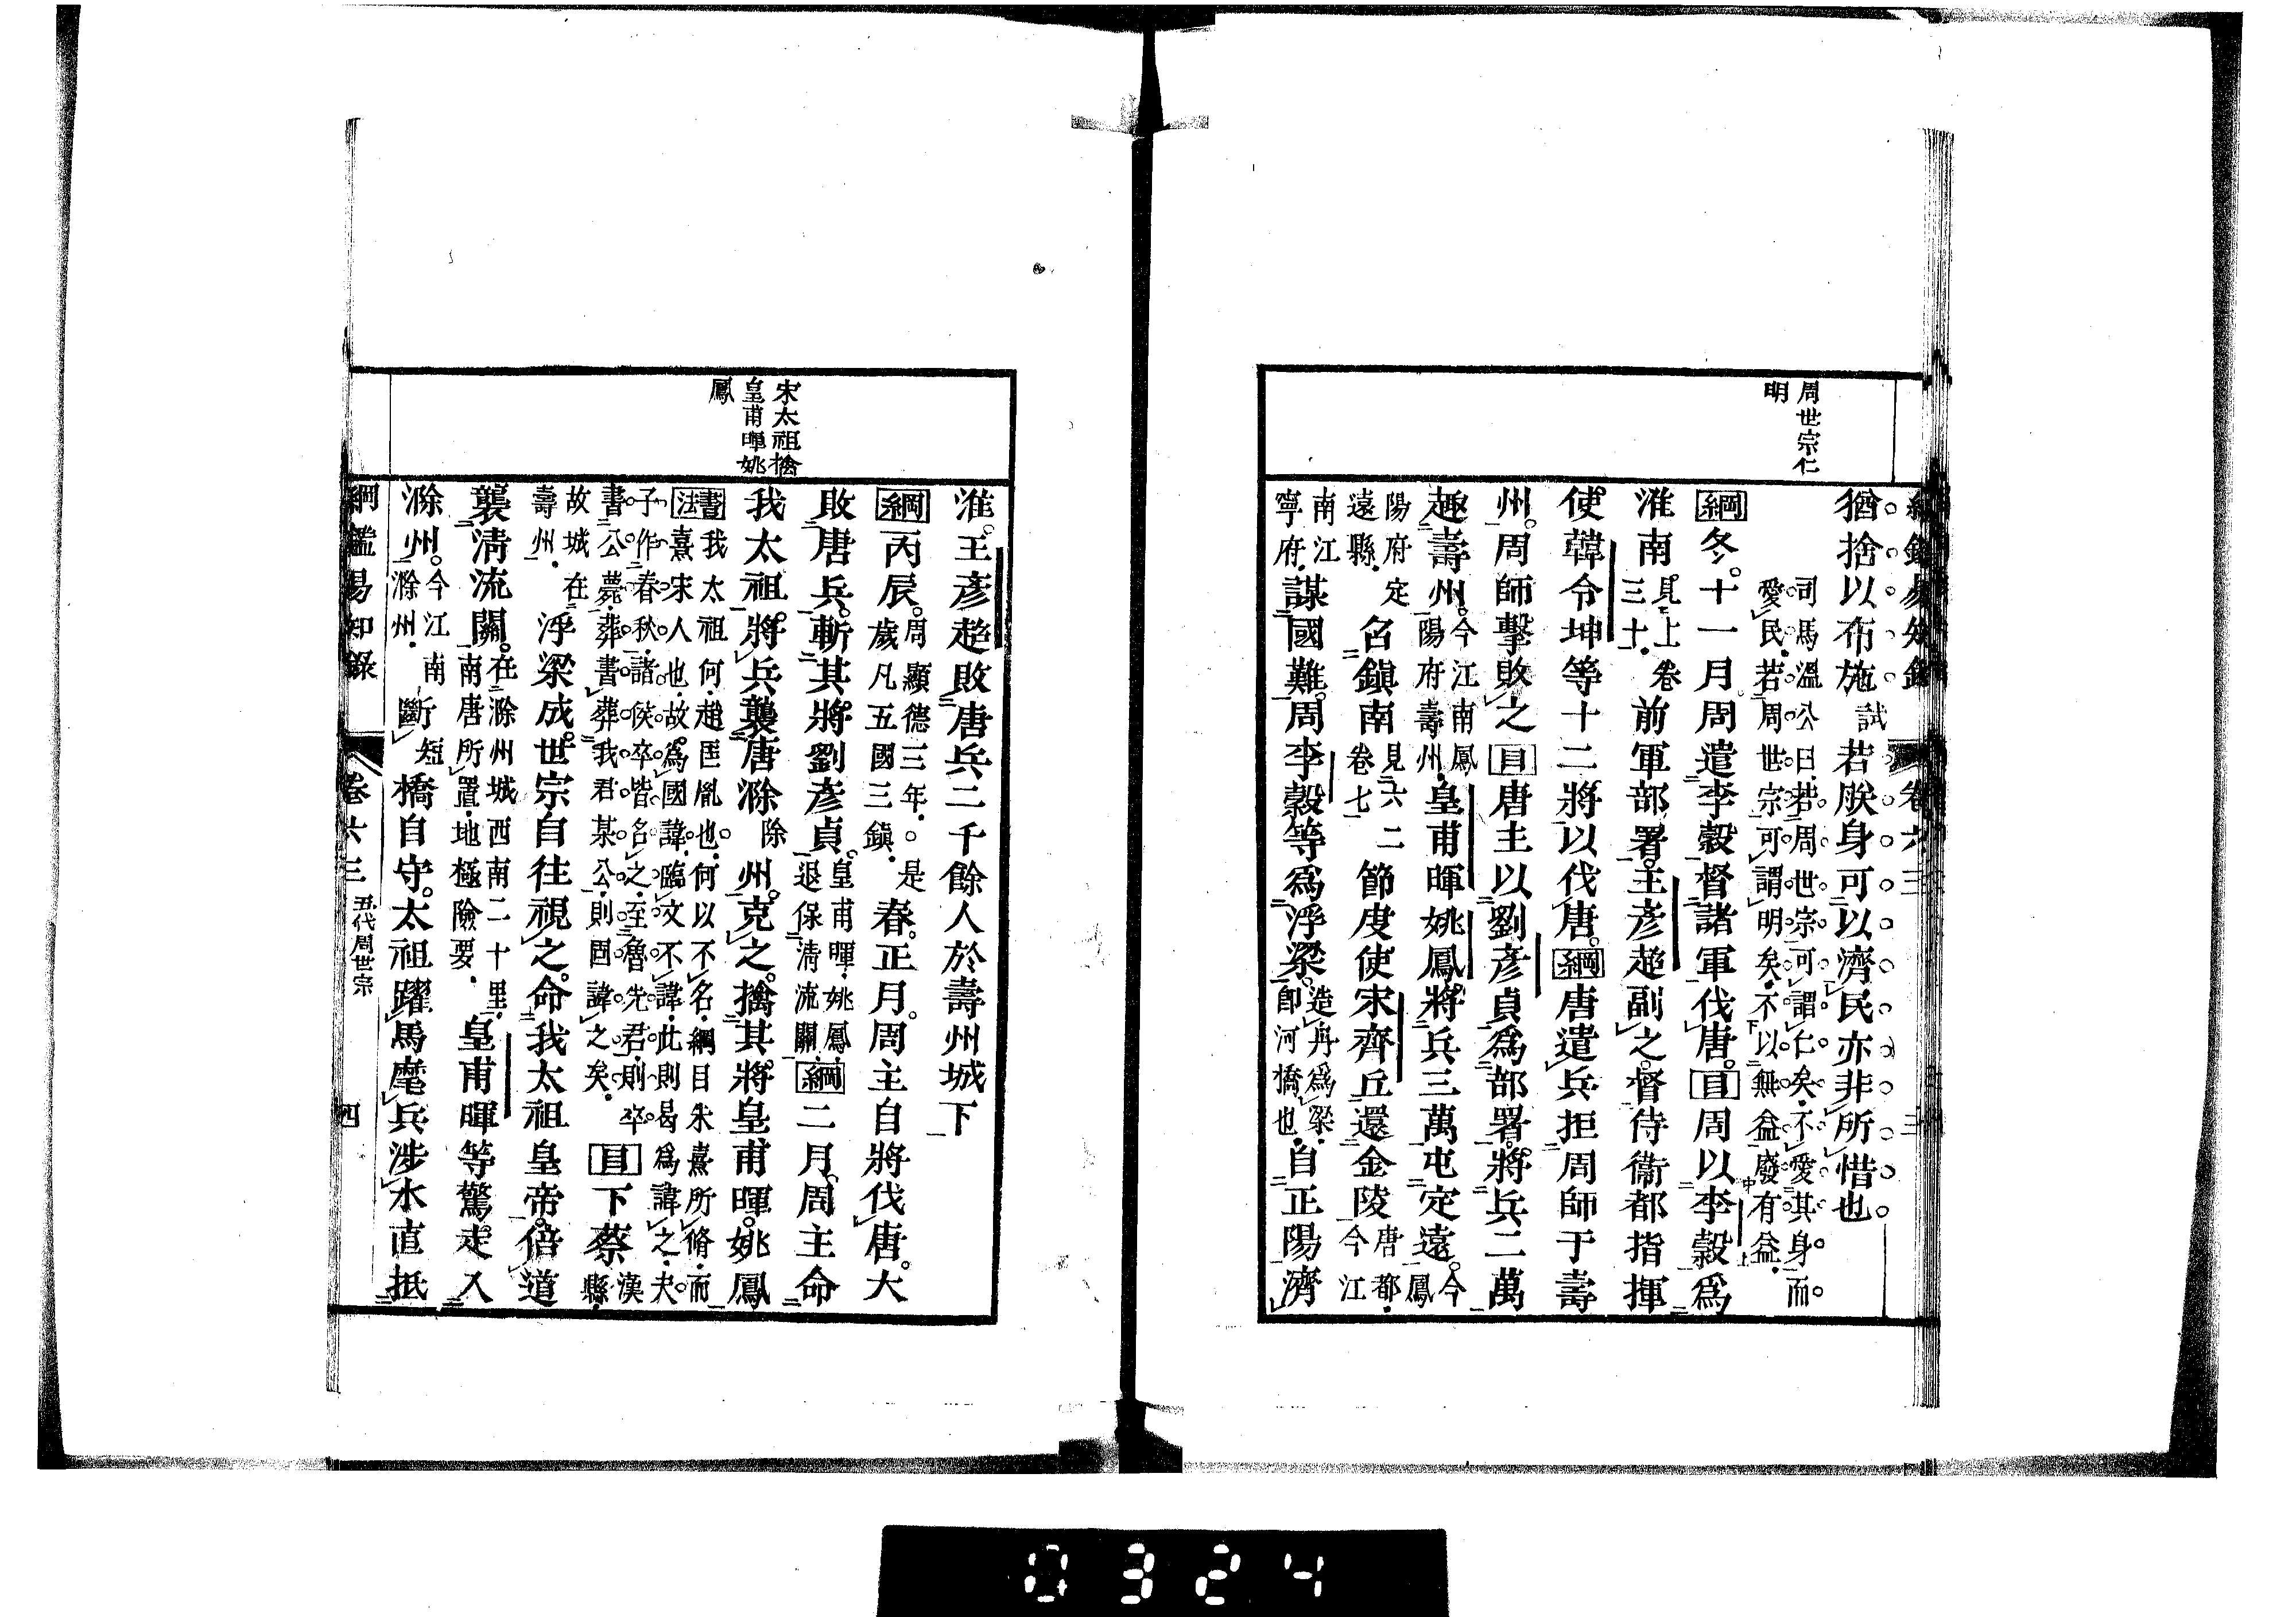 周世宗仁
明
猶捨以布施試若朕身可以濟民亦非所惜也
司馬溫公曰若周世宗可謂仁矣不愛其身而
愛民若周世宗可謂明矣不以無益廢有益
綱冬十一月周遣李穀督諸軍伐唐目周以李穀爲
淮南見上卷三十前軍部署王彥超副之督侍衞都指揮
使韓令坤等十二將以伐唐綱唐遣兵拒周師于壽
州周師擊敗之目唐主以劉彥貞爲部署將兵二萬
趣壽州今江南鳳陽府壽州皇甫暉姚鳳將兵三萬屯定遠今鳳
陽府定遠縣召鎭南見六二卷七節度使宋齊丘還金陵唐都今江
南江寧府謀國難周李穀等爲浮梁造舟爲梁卽河橋也自正陽濟
宋太祖擒
皇甫暉姚
鳳
淮王彥超敗唐兵二千餘人於壽州城下
綱丙辰周顯德三年是歲凡五國三鎭春正月周主自將伐唐大
敗唐兵斬其將劉彥貞皇甫暉姚鳳退保淸流關綱二月周主命
我太祖將兵襲唐滁除州克之擒其將皇甫暉姚鳳
書法我太祖何趙匡胤也何以不名綱目朱熹所脩而
熹宋人也故爲國諱臨文不諱此則曷爲諱之夫
子作春秋諸侯卒皆名之至魯先君則卒
書公薨葬書葬我君某公則固諱之矣目下蔡漢縣
故城在壽州浮梁成世宗自往視之命我太祖皇帝倍道
襲淸流關在滁州城西南二十里南唐所置地極險要皇甫暉等驚走入
滁州今江南滁州斷短橋自守太祖躍馬麾兵涉水直抵
綱鑑易知錄 卷六三 五代周世宗 四